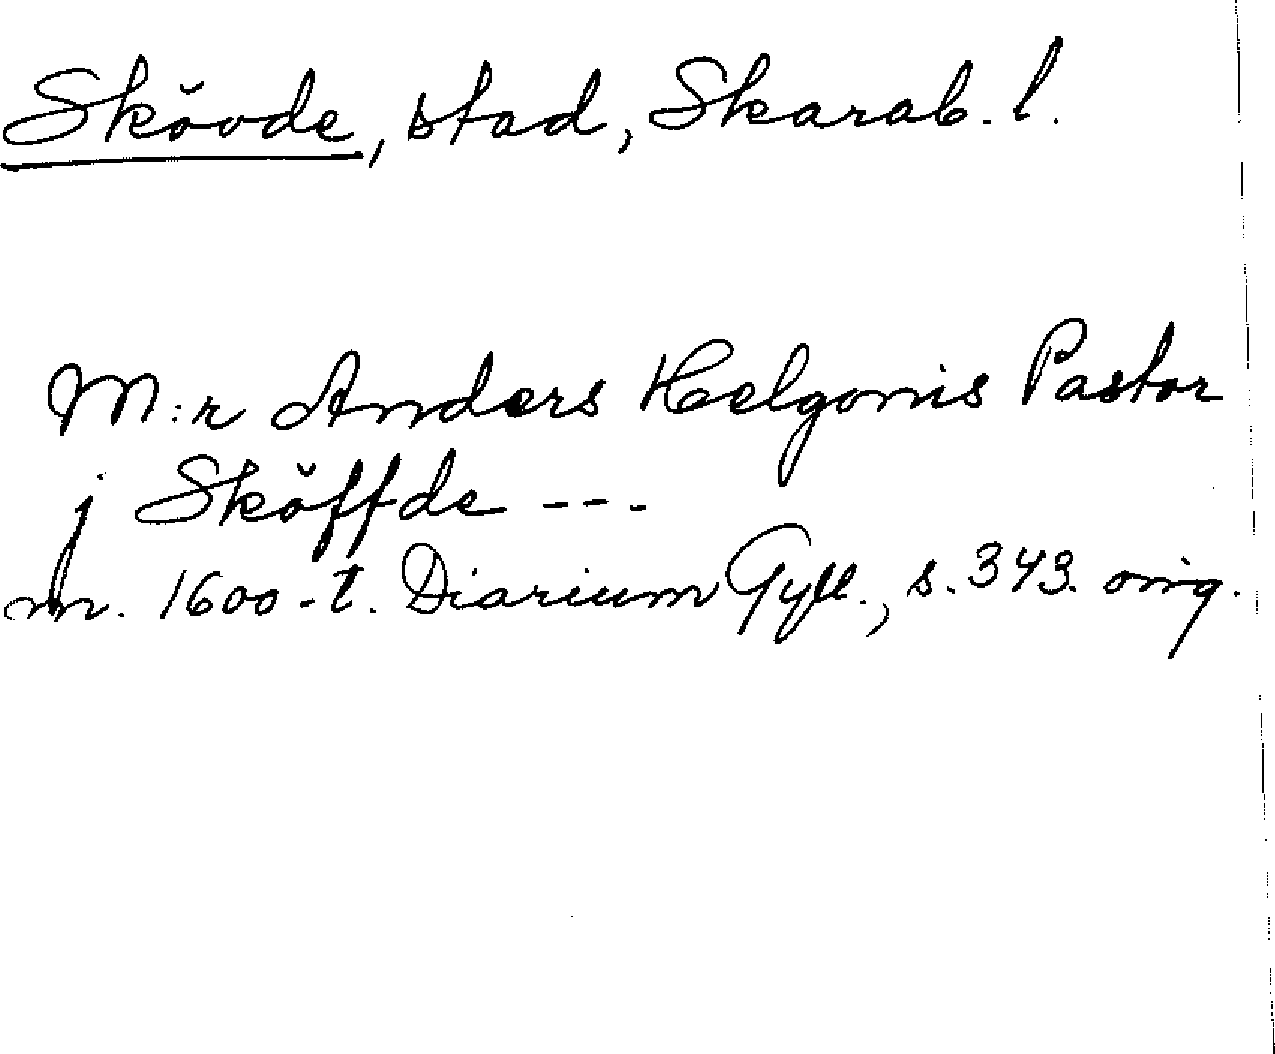 Skövde, stad, Skarab. l.
M:r Anders Helgonis Pastor
j Sköffde ---
m. 1600-t. Diarium Gyll., s. 343. orig.